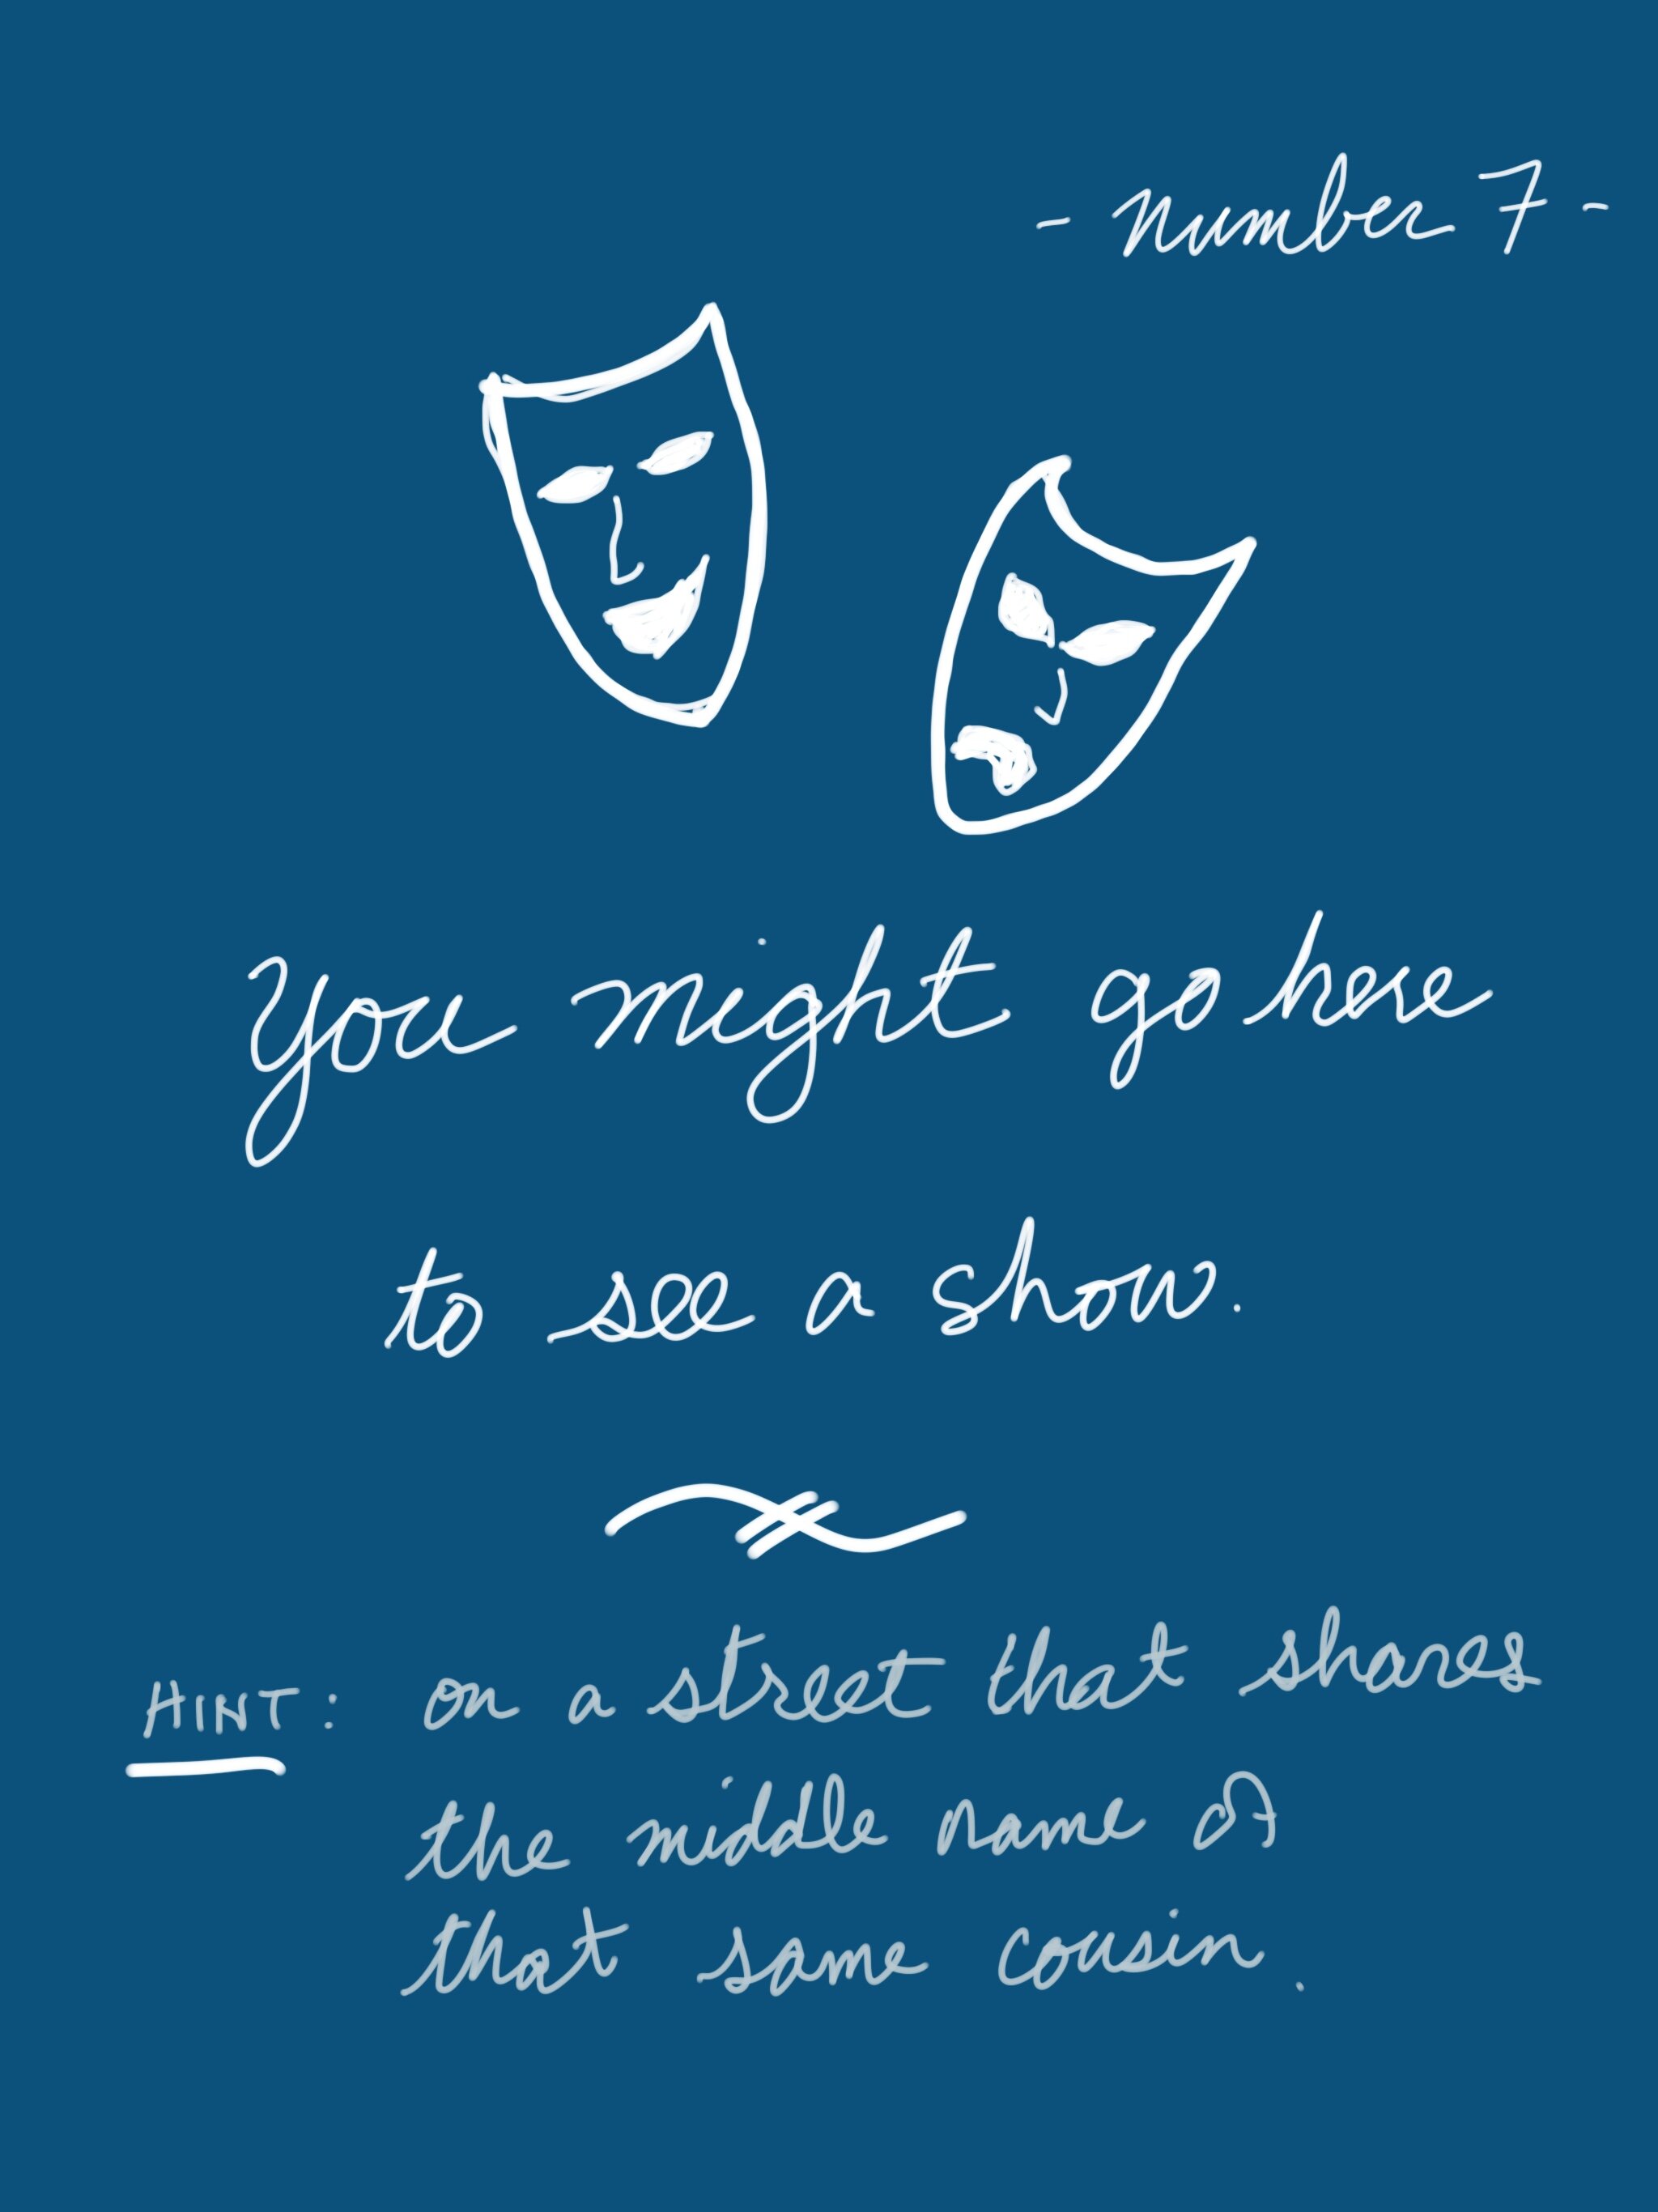 - Number 7 -
You might go here
to see a show.
HINT: on a street that shares
the middle name of
that same cousin.